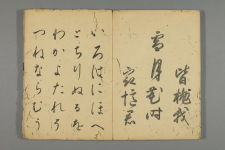 皆棑我
雪月花时
寂憶君
いろはにほへ
とちりぬるを
わかよたれそ
つねならむう